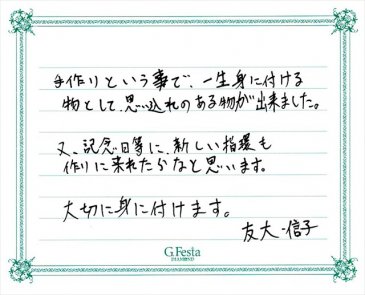 手作りという事で、一生身に付ける
物として、思い込れのある物が出来ました。
又、記念日等に、新しい指環も
作りに来れたらなと思います。
大切に身に付けます。
友大・信子
G.Festa
DIAMOND